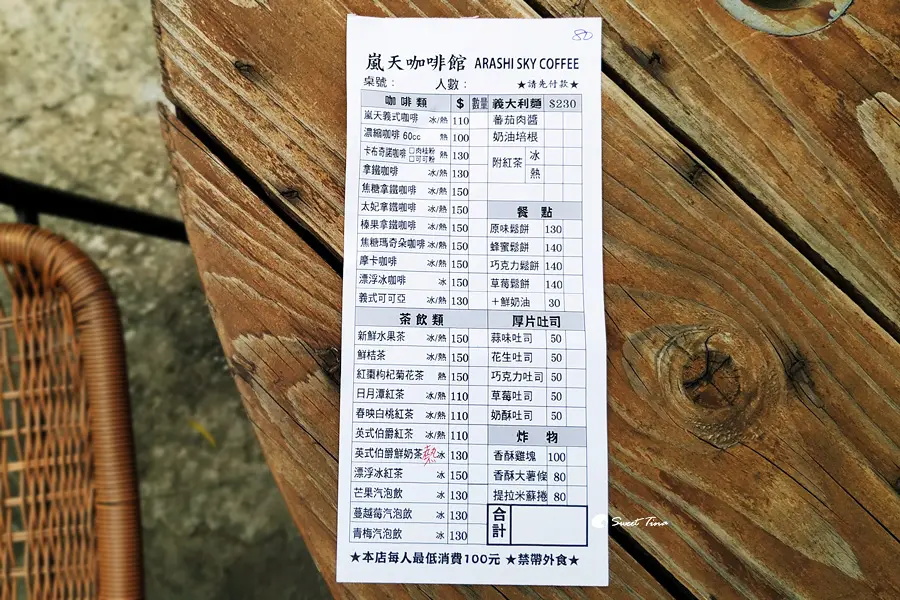 80
嵐天咖啡館 ARASHI SKY COFFEE
桌號： 人數： ★請先付款★
咖啡類 $ 數量
嵐天義式咖啡 冰/熱 110
濃縮咖啡 60cc 熱 100
卡布奇諾咖啡 □肉桂粉 □可可粉 熱 130
拿鐵咖啡 冰/熱 130
焦糖拿鐵咖啡 冰/熱 150
太妃拿鐵咖啡 冰/熱 150
榛果拿鐵咖啡 冰/熱 150
焦糖瑪奇朵咖啡 冰/熱 150
摩卡咖啡 冰/熱 150
漂浮冰咖啡 冰 150
義式可可亞 冰/熱 130
茶飲類
新鮮水果茶 冰/熱 150
鮮桔茶 冰/熱 150
紅棗枸杞菊花茶 熱 150
日月潭紅茶 冰/熱 110
春映白桃紅茶 冰/熱 110
英式伯爵紅茶 冰/熱 110
英式伯爵鮮奶茶 熱 冰 130
漂浮冰紅茶 冰 150
芒果汽泡飲 冰 130
蔓越莓汽泡飲 冰 130
青梅汽泡飲 冰 130
義大利麵 $230
蕃茄肉醬
奶油培根
附紅茶 冰
熱
餐點
原味鬆餅 130
蜂蜜鬆餅 140
巧克力鬆餅 140
草莓鬆餅 140
＋鮮奶油 30
厚片吐司
蒜味吐司 50
花生吐司 50
巧克力吐司 50
草莓吐司 50
奶酥吐司 50
炸物
香酥雞塊 100
香酥大薯條 80
提拉米蘇捲 80
合計
★本店每人最低消費100元 ★禁帶外食★
Sweet Tina